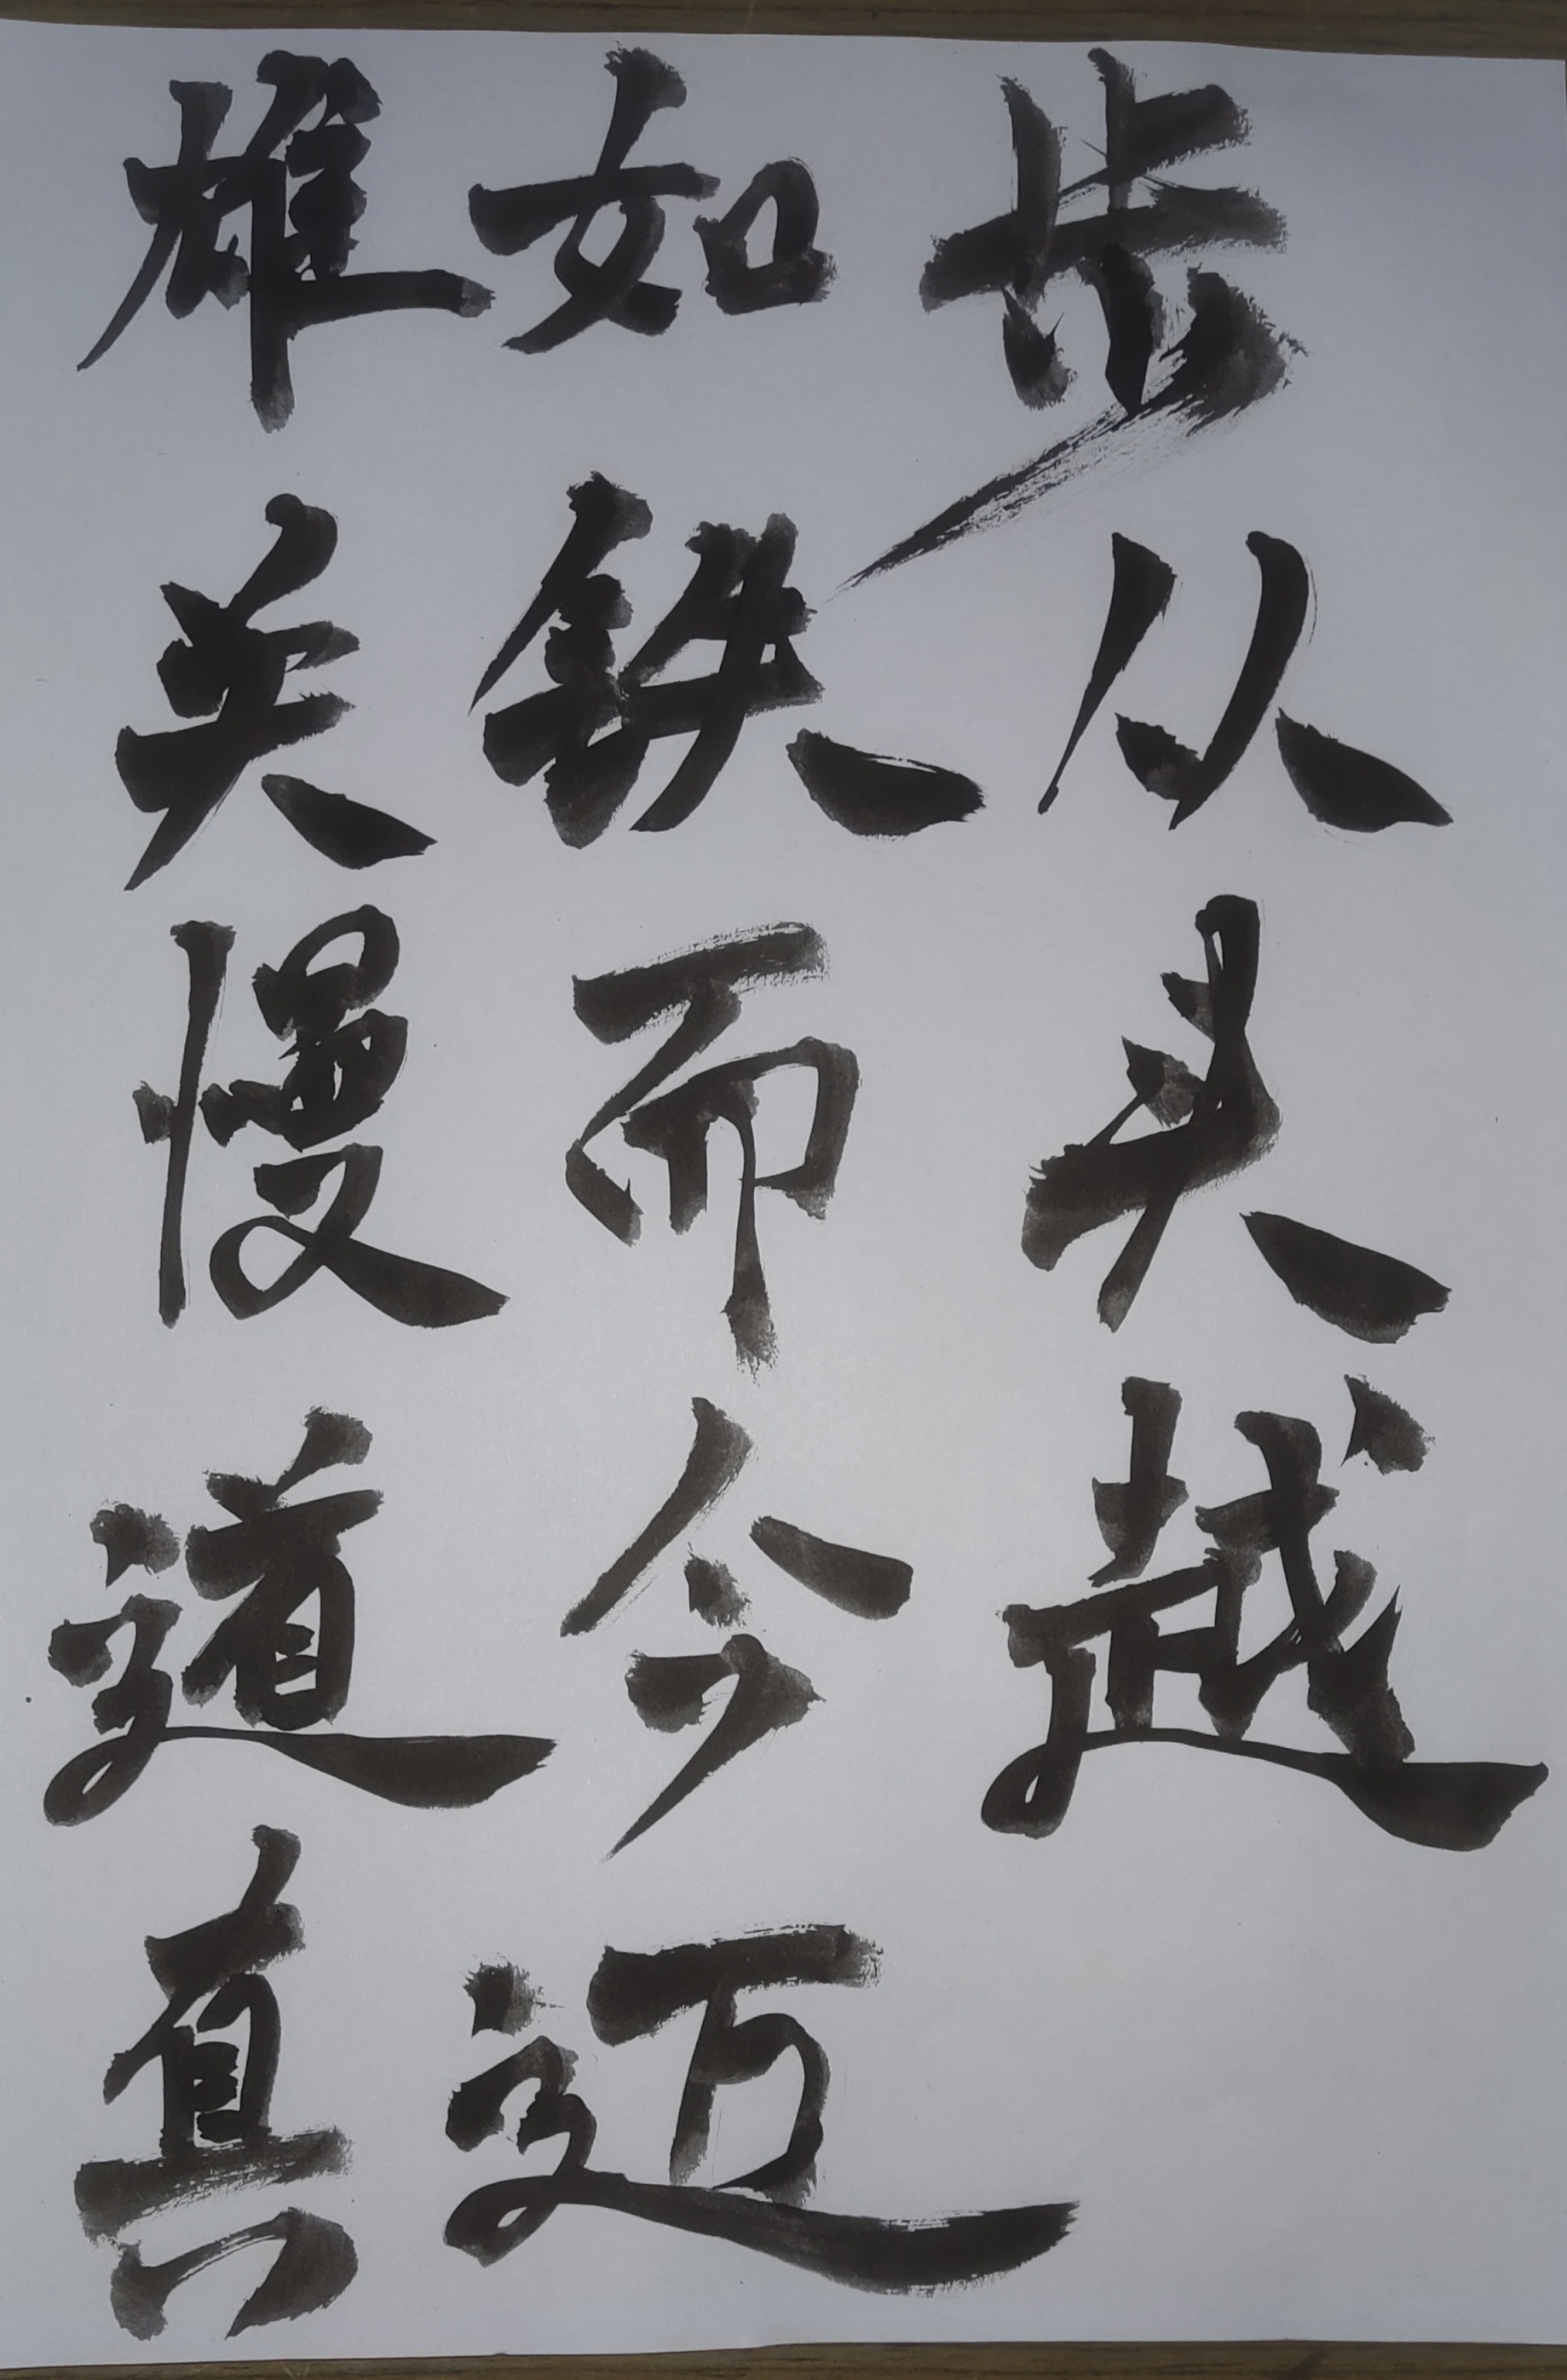 雄关慢道真
如铁而今迈
步从头越